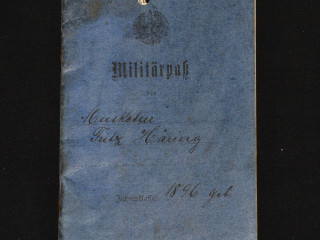 Militärpaß
des
Musketier
Fritz Häring
Jahresklasse: 1896 geb